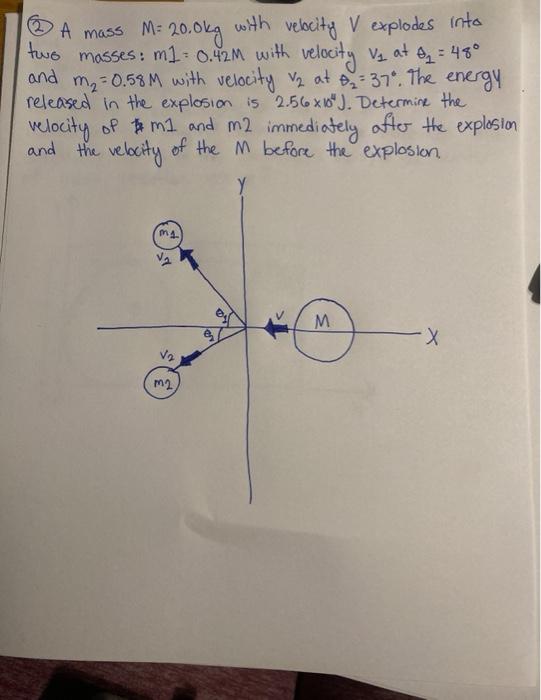 ② A mass M= 20.0kg with velocity V explodes into
two masses: m1= 0.42M with velocity V1 at θ1 = 48°
and m2=0.58M with velocity V2 at θ2=37°. The energy
released in the explosion is 2.56x10⁴ J. Determine the
velocity of m1 and m2 immediately after the explosion
and the velocity of the M before the explosion.
Y
m1
V2
θ1
V
M
X
θ2
V2
m2